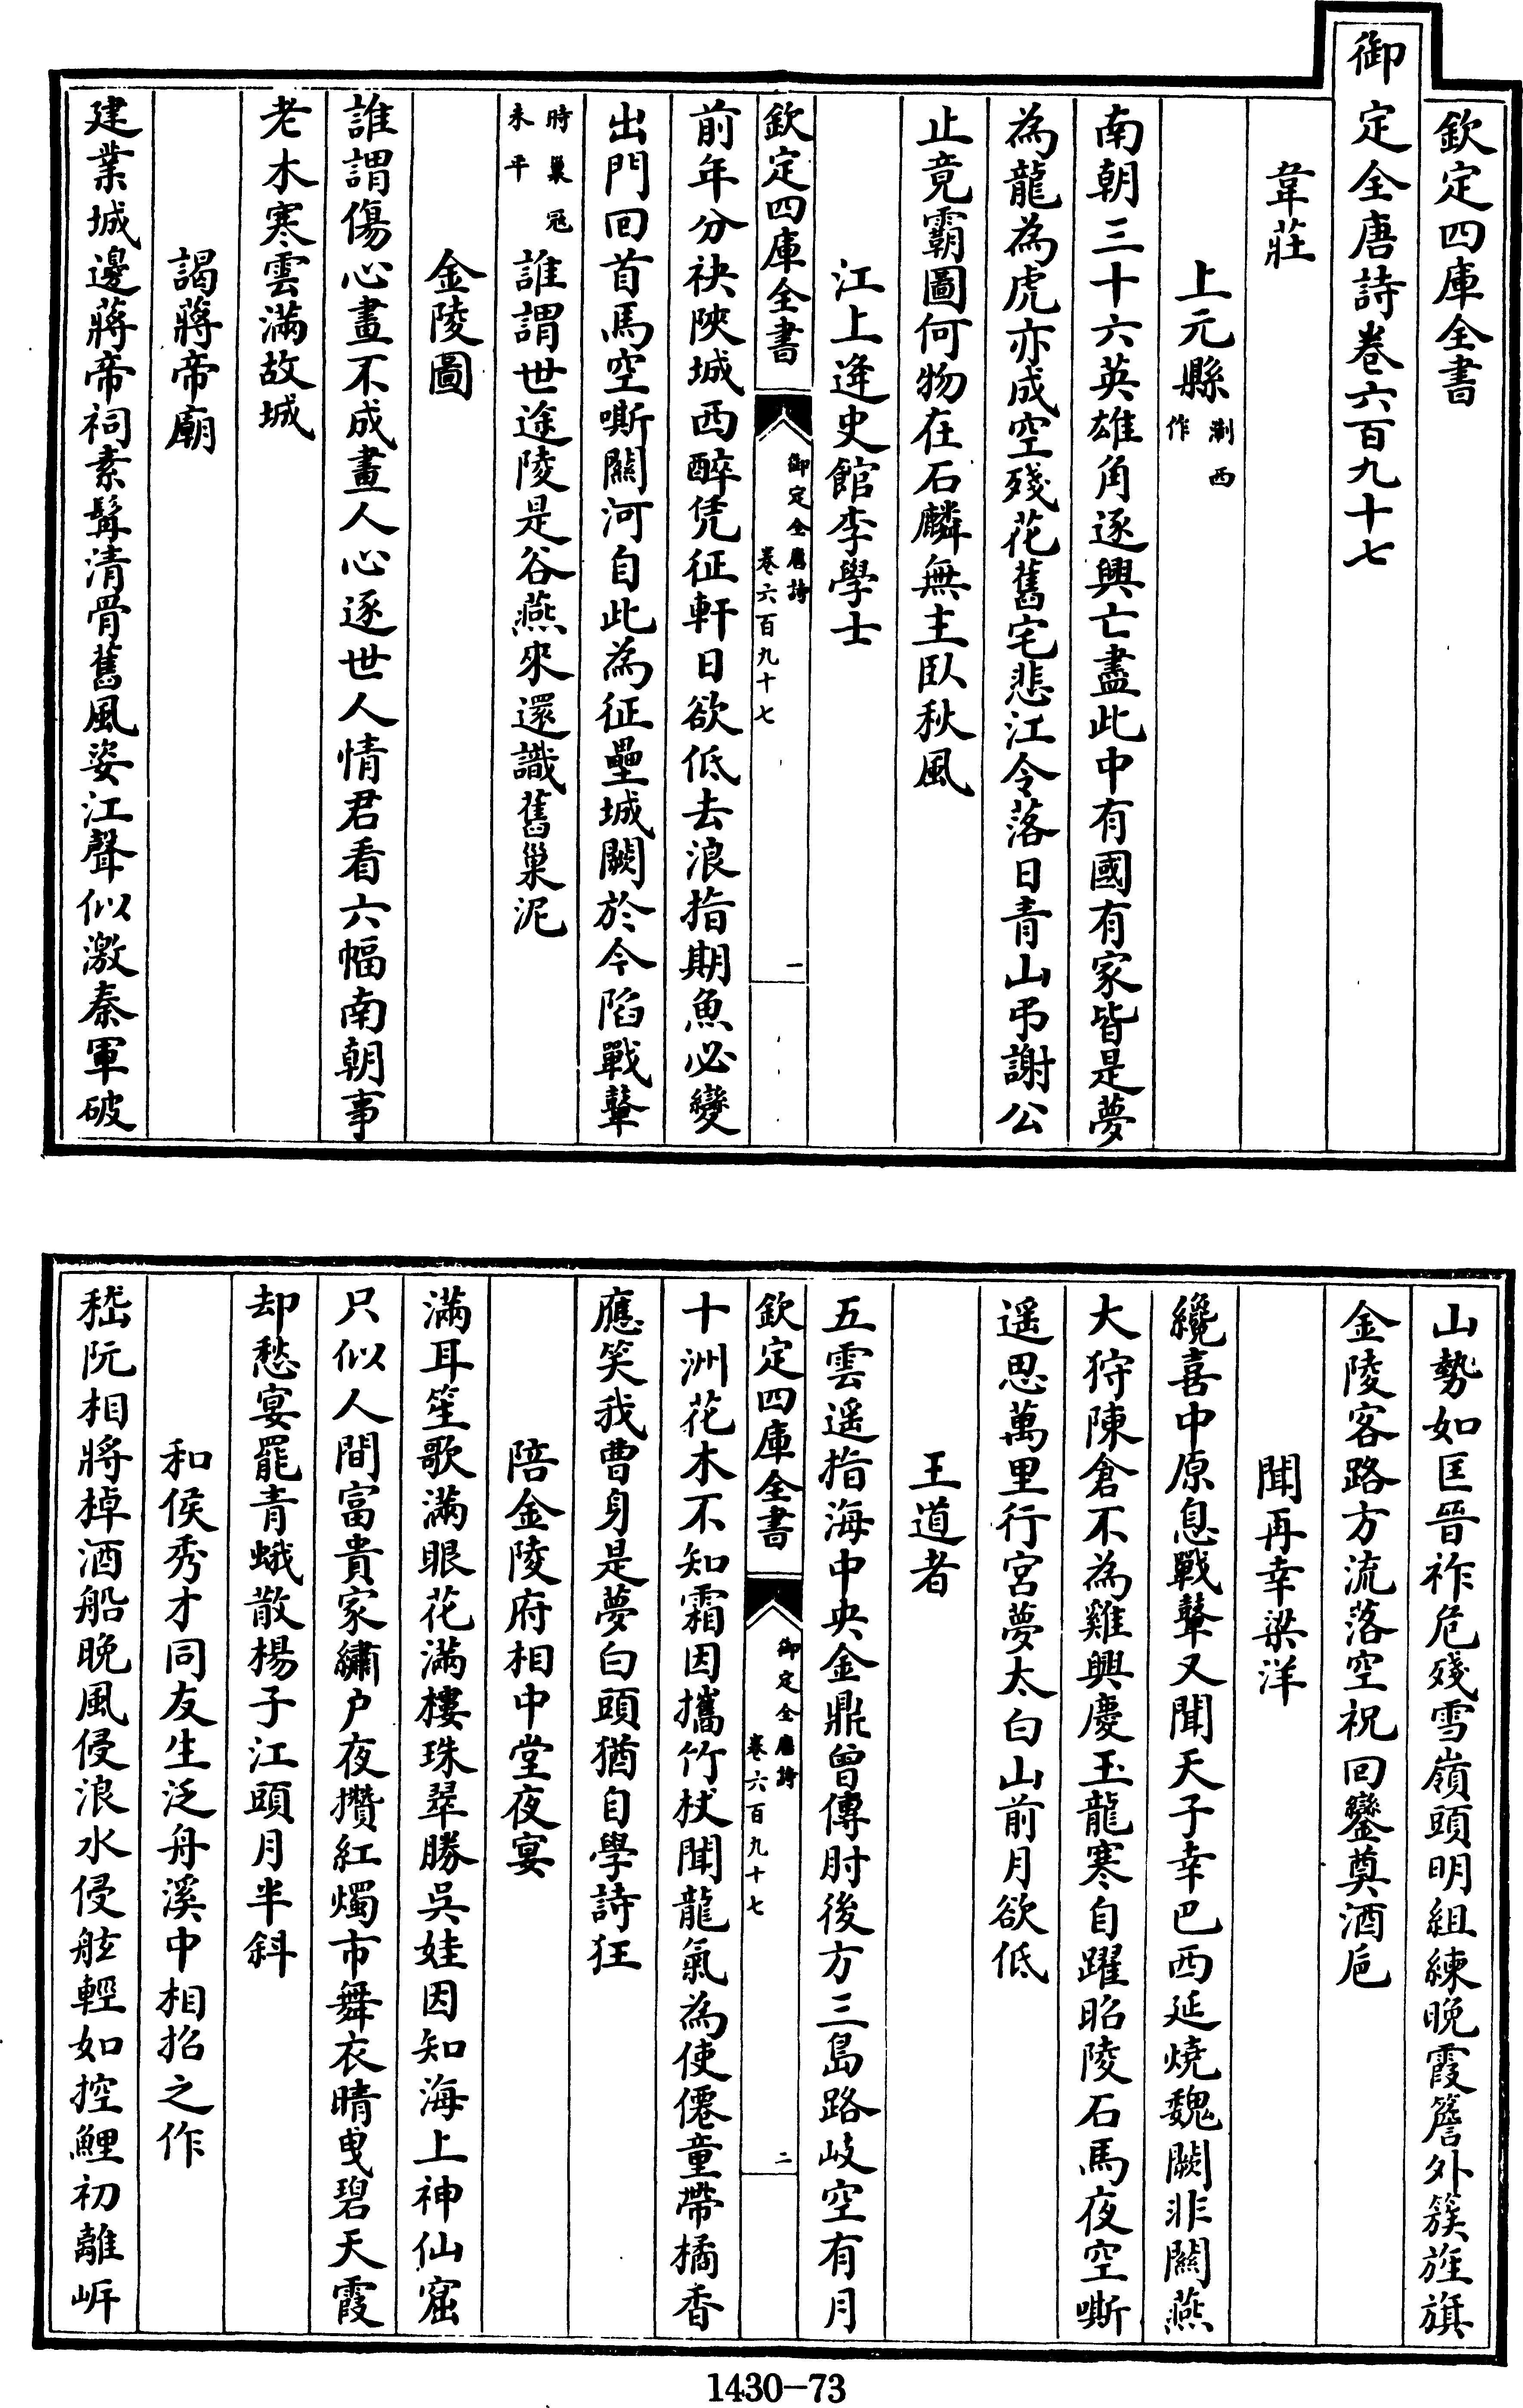 欽定四庫全書
御定全唐詩卷六百九十七
韋莊
上元縣 淛西作
南朝三十六英雄角逐興亡盡此中有國有家皆是夢
為龍為虎亦成空殘花舊宅悲江令落日青山弔謝公
止竟霸圖何物在石麟無主臥秋風
江上逢史館李學士
欽定四庫全書
御定全唐詩
卷六百九十七
一
前年分袂陝城西醉凭征軒日欲低去浪指期魚必變
出門回首馬空嘶關河自此為征壘城闕於今陷戰鼙
時巢冦未平 誰謂世途陵是谷燕來還識舊巢泥
金陵圖
誰謂傷心畫不成畫人心逐世人情君看六幅南朝事
老木寒雲滿故城
謁蔣帝廟
建業城邊蔣帝祠素髯清骨舊風姿江聲似激秦軍破
山勢如匡晉祚危殘雪嶺頭明組練晚霞簷外簇旌旗
金陵客路方流落空祝回鑾奠酒巵
聞再幸梁洋
纔喜中原息戰鼙又聞天子幸巴西延燒魏闕非關燕
大狩陳倉不為雞興慶玉龍寒自躍昭陵石馬夜空嘶
遥思萬里行宮夢太白山前月欲低
王道者
五雲遥指海中央金鼎曾傳肘後方三島路岐空有月
欽定四庫全書
御定全唐詩
卷六百九十七
二
十洲花木不知霜因攜竹杖聞龍氣為使僊童帶橘香
應笑我曹身是夢白頭猶自學詩狂
陪金陵府相中堂夜宴
滿耳笙歌滿眼花滿樓珠翠勝吳娃因知海上神仙窟
只似人間富貴家繡户夜攢紅燭市舞衣晴曳碧天霞
却愁宴罷青蛾散楊子江頭月半斜
和侯秀才同友生泛舟溪中相招之作
嵇阮相將棹酒船晚風侵浪水侵舷輕如控鯉初離岍
1430-73